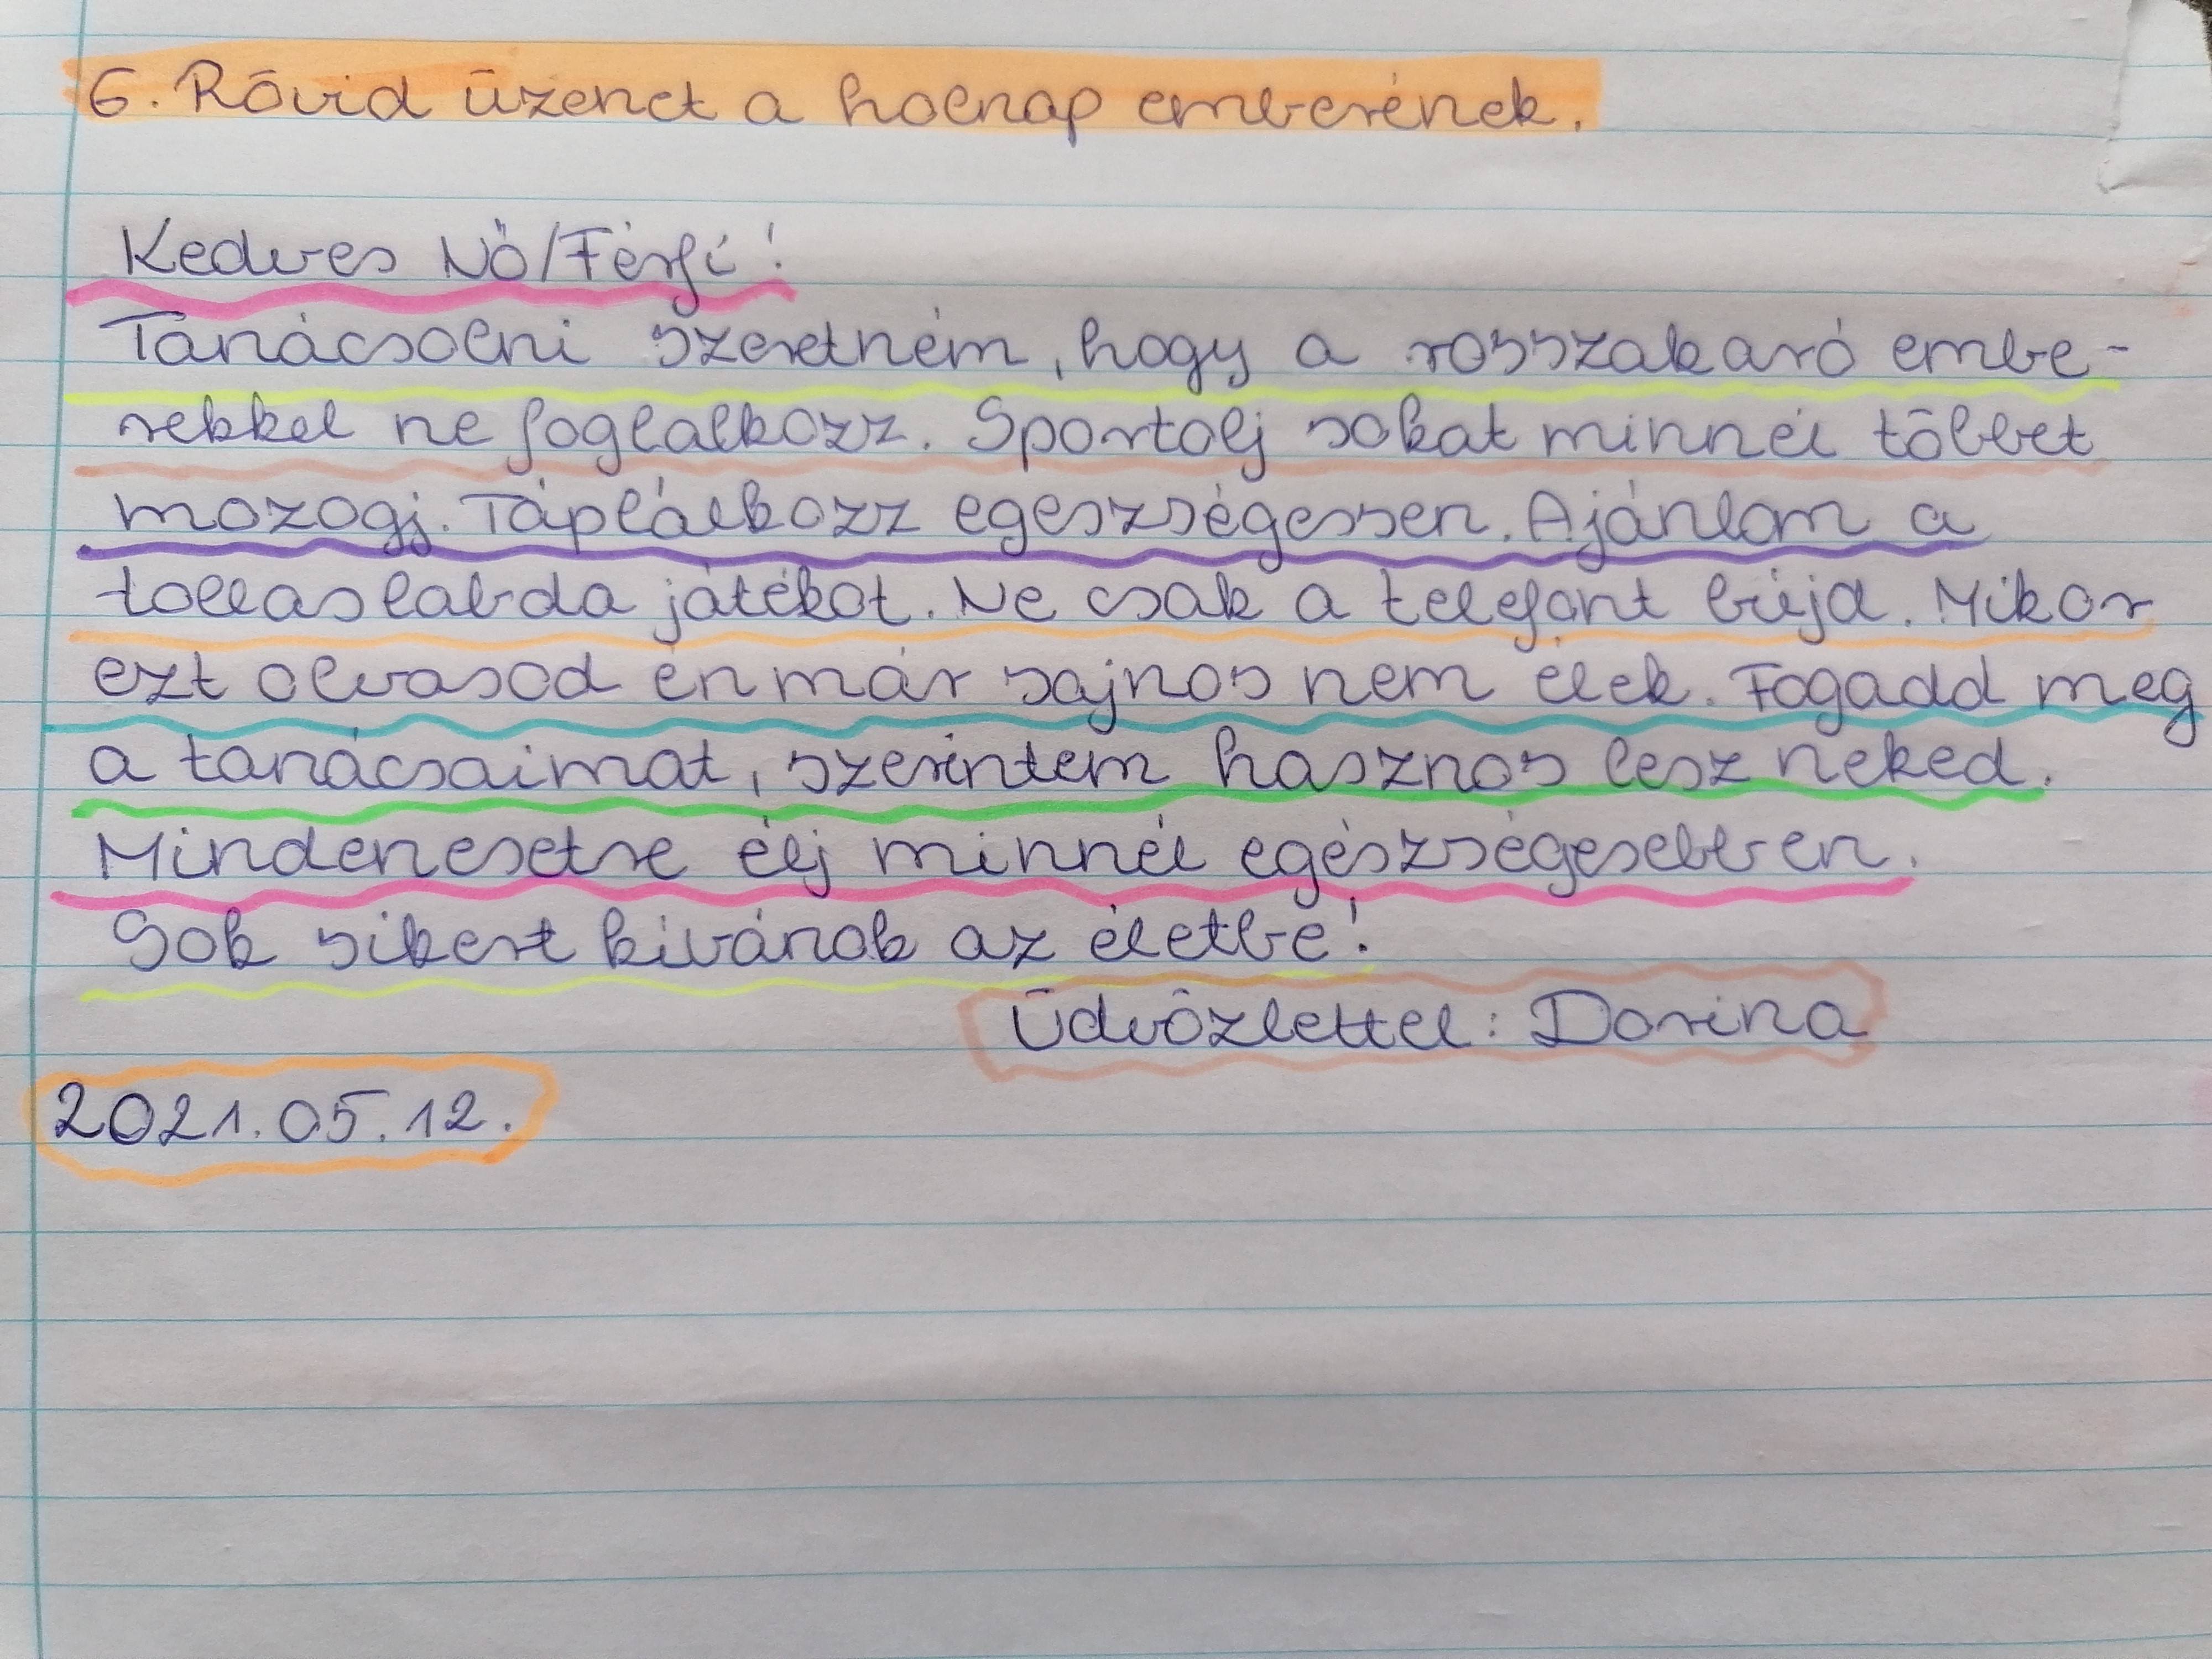 6. Rövid üzenet a holnap emberének.
Kedves Nő/Férfi!
Tanácsolni szeretném, hogy a rosszakaró embe-
rekkel ne foglalkozz. Sportolj sokat minnél többet
mozogj. Táplálkozz egeszségessen. Ajánlom a
tollaslabda játékot. Ne csak a telefont bújd. Mikor
ezt olvasod én már sajnos nem élek. Fogadd meg
a tanácsaimat, szerintem hasznos lesz neked.
Mindenesetre élj minnél egészségesebben.
Sok sikert kívánok az életbe!
Üdvözlettel: Dorina
2021.05.12.